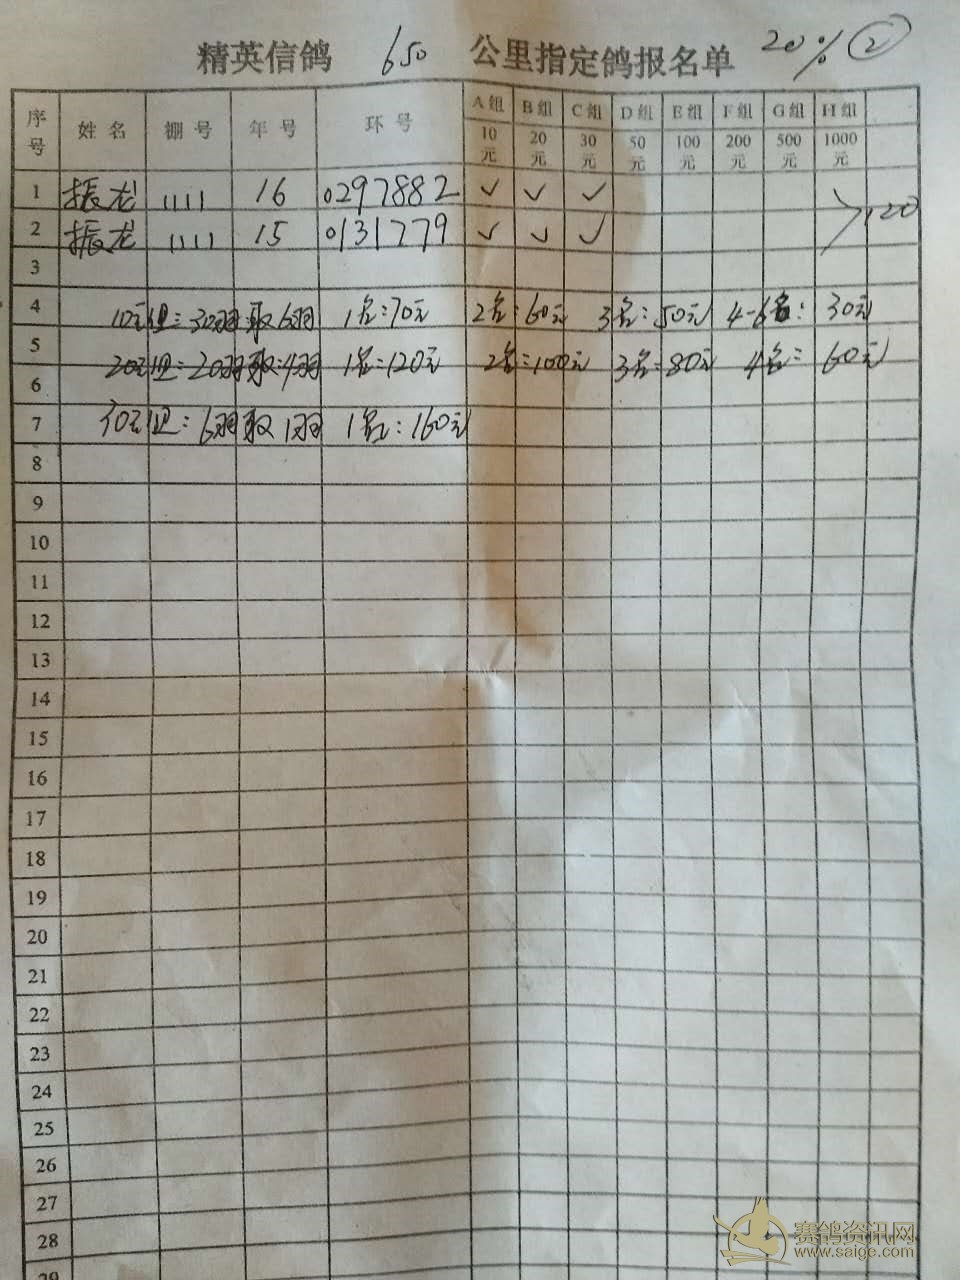 精英信鸽 650 公里指定鸽报名单 20% ②
序号 姓名 棚号 年号 环号 A组 B组 C组 D组 E组 F组 G组 H组
10元 20元 30元 50元 100元 200元 500元 1000元
1 振龙 1111 16 0297882 ✓ ✓ ✓
120
2 振龙 1111 15 0131779 ✓ ✓ ✓
3
4 10元组:30羽取6羽 1名:70元 2名:60元 3名:50元 4-6名:30元
5 20元组:20羽取4羽 1名:120元 2名:100元 3名:80元 4名:60元
6
7 30元组:6羽取1羽 1名:160元
8
9
10
11
12
13
14
15
16
17
18
19
20
21
22
23
24
25
26
27
28
29
赛鸽资讯网
www.saige.com